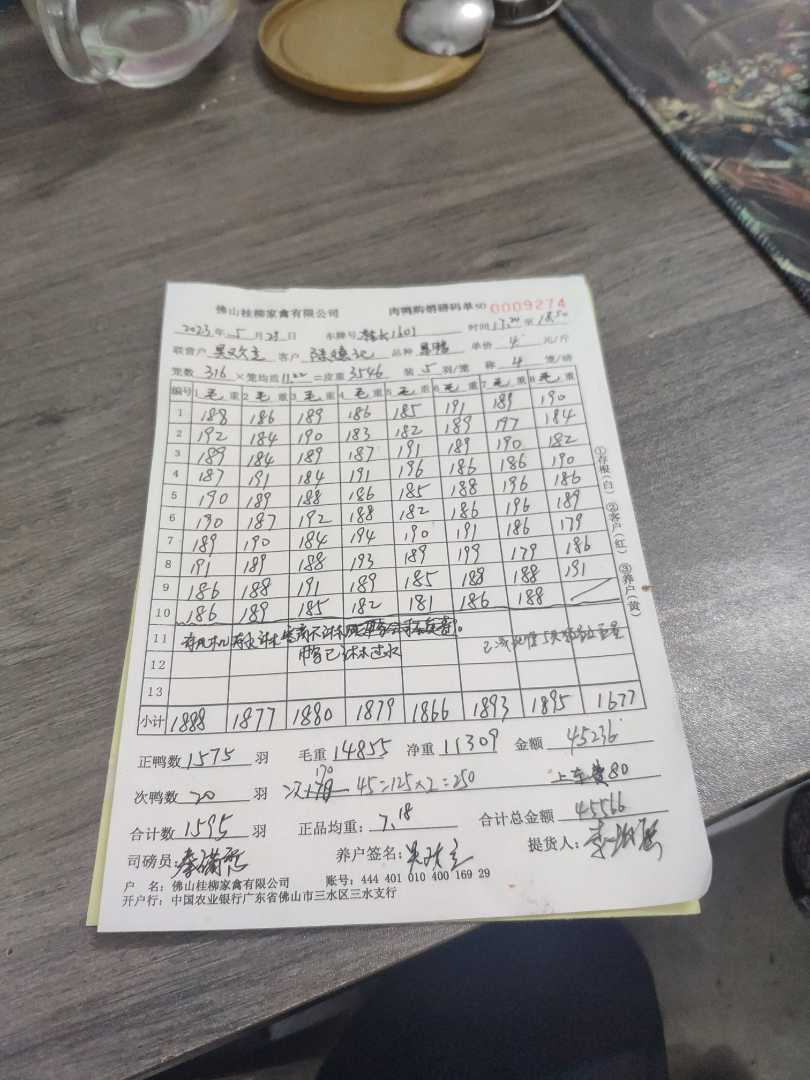 佛山桂柳家禽有限公司 肉鸭购销磅码单 NO 0009274
2023年5月25日 车牌号 1601 时间17.20至18.50
联营户 吴 客户 陆 记 品种 单价 4 元/斤
笼数 316 ×笼均重11.22=皮重3546 装 5 羽/笼 称 4 笼/磅
编号 1毛重 2毛重 3毛重 4毛重 5毛重 6毛重 7毛重 8毛重
1 188 186 189 186 185 191 189 190
2 192 184 190 183 182 189 197 184
3 189 184 189 187 191 189 190 182
4 187 191 184 191 196 186 186 190
5 190 189 188 186 185 188 196 186
6 190 187 192 188 182 186 196 189
7 189 190 184 194 190 191 186 179
8 191 189 188 193 189 199 179 186
9 186 188 191 189 185 188 188 191
10 186 189 185 182 181 186 188
11
12
13
小计 1888 1877 1880 1879 1866 1893 1895 1677
正鸭数 1575 羽 毛重 14855 净重 11309 金额 45236
次鸭数 20 羽 170-45=125×2=250 上车费80
合计数 1595 羽 正品均重: 7.18 合计总金额 45566
司磅员: 养户签名: 吴 提货人: 李
户 名: 佛山桂柳家禽有限公司 账号: 444 401 010 400 169 29
开户行: 中国农业银行广东省佛山市三水区三水支行
①存根(白) ②客户(红) ③养户(黄)